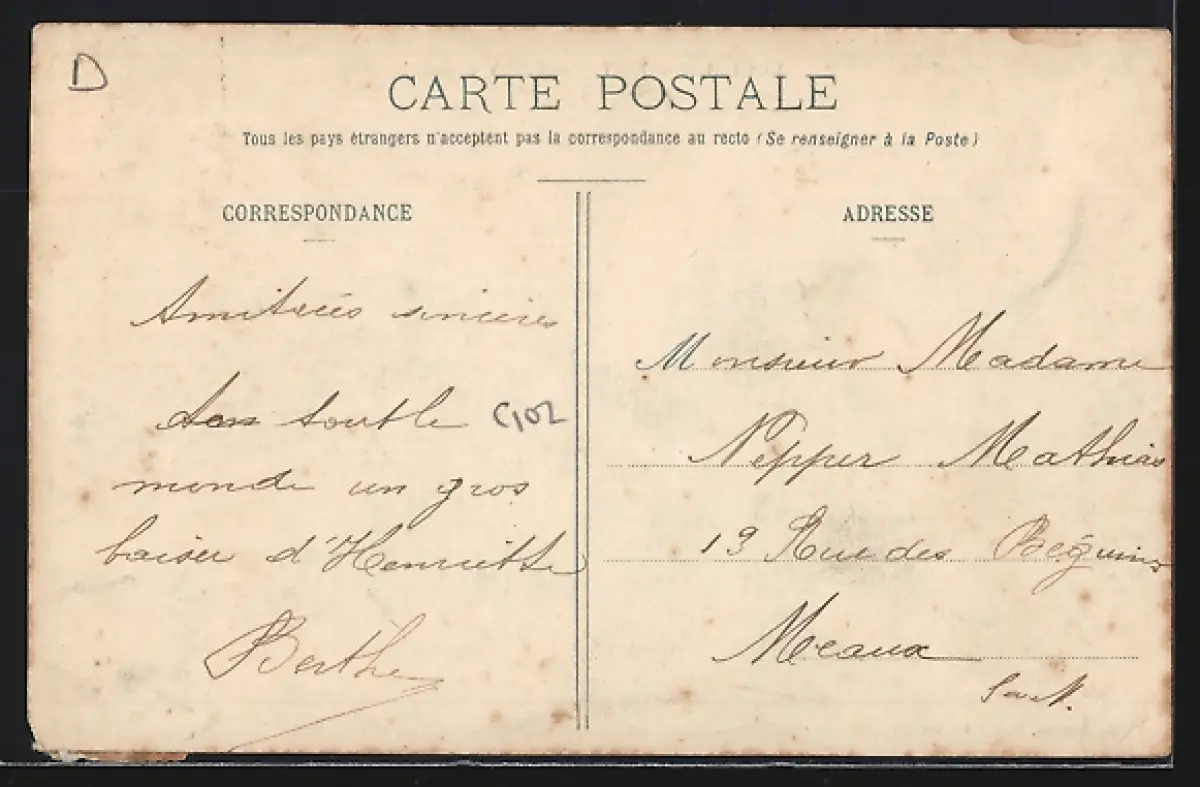 D
CARTE POSTALE
Tous les pays étrangers n'acceptent pas la correspondance au recto (Se renseigner à la Poste)
CORRESPONDANCE
Amitiés sincères
tout le
monde un gros
baiser d'Henriette
Berthe
ADRESSE
Monsieur Madame
Nepper Mathias
13 Rue des Béguines
Meaux
S et M.